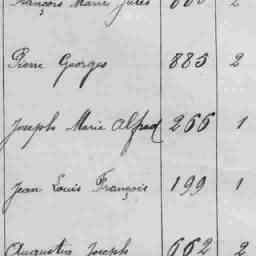 François Marie Jules 2
Pierre Georges 885 2
Joseph Marie Alfred 266 1
Jean Louis François 199 1
Augustin Joseph 662 2